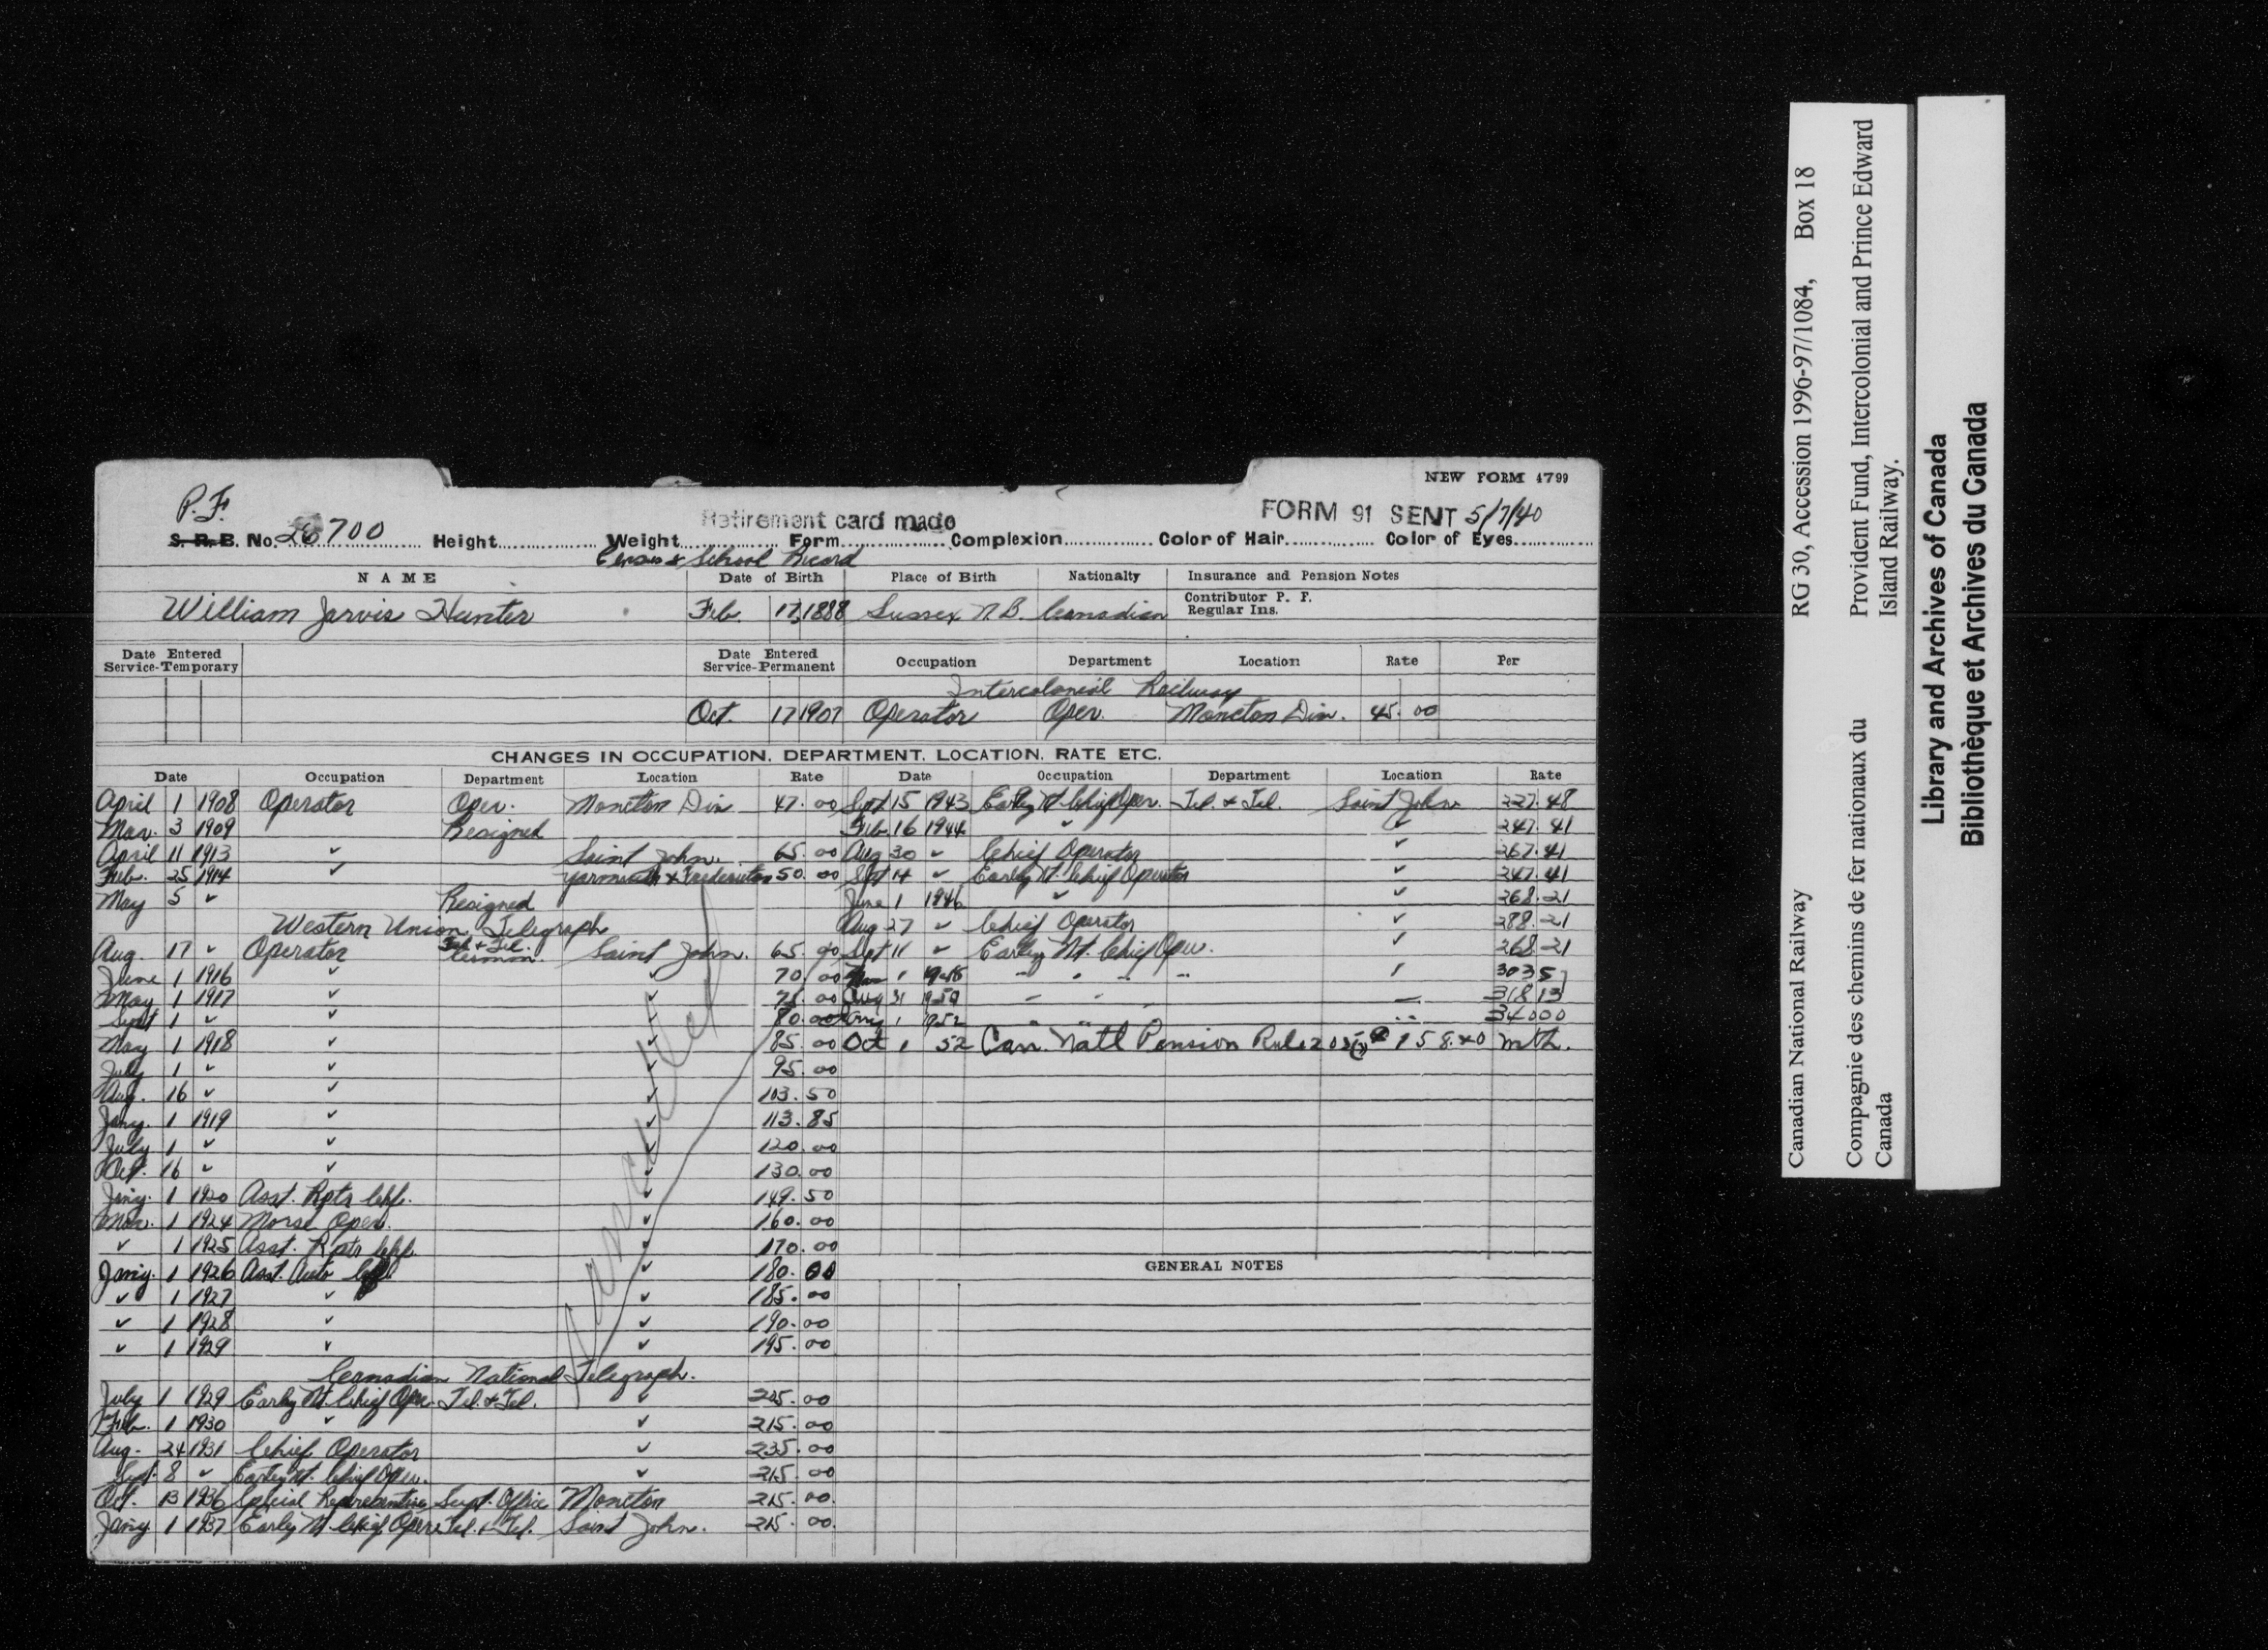 NEW FORM 4799
P. F.
Retirement card made
FORM 91 SENT 5/7/40
S. R. B. No. 26700 Height Weight Form Complexion Color of Hair Color of Eyes
Census & School Record
NAME Date of Birth Place of Birth Nationalty Insurance and Pension Notes
William Jarvis Hunter Feb. 17, 1888 Sussex N.B. Canadian Contributor P. F.
Regular Ins.
Date Entered Service-Temporary Date Entered Service-Permanent Occupation Department Location Rate Per
Intercolonial Railway
Oct. 17 1907 Operator Oper. Moncton Div. 45.00
CHANGES IN OCCUPATION, DEPARTMENT, LOCATION, RATE ETC.
Date Occupation Department Location Rate Date Occupation Department Location Rate
April 1 1908 Operator Oper. Moncton Div. 47.00 Sept 15 1943 Early Nt. Chief Oper. Tel. & Tel. Saint John 227.48
Mar. 3 1909 Resigned Feb. 16 1944 ✓ ✓ 247.41
April 11 1913 ✓ Saint John. 65.00 Aug 30 ✓ Chief Operator ✓ 267.41
Feb. 25 1914 ✓ Yarmouth & Fredericton 50.00 Sept 14 ✓ Early Nt. Chief Operator ✓ 247.41
May 5 ✓ Resigned June 1 1946 ✓ ✓ 268.21
Western Union Telegraph Aug 27 ✓ Chief Operator ✓ 288.21
Aug. 17 ✓ Operator Tel. & Tel. Saint John. 65.00 Sept 11 ✓ Early Nt. Chief Oper. ✓ 268.21
June 1 1916 ✓ ✓ 70.00 Mar 1 1948 " " " " 303 57
May 1 1917 ✓ ✓ 75.00 Aug 31 1950 318 13
Sept 1 ✓ ✓ ✓ 80.00 1 1952 " " 340 00
May 1 1918 ✓ ✓ 85.00 Oct 1 52 Can. Natl Pension Rules $158.40 mth.
July 1 ✓ ✓ ✓ 95.00
Aug. 16 ✓ ✓ ✓ 103.50
Jany. 1 1919 ✓ ✓ 113.85
July 1 ✓ ✓ ✓ 120.00
Oct. 16 ✓ ✓ ✓ 130.00
Jany. 1 1920 Asst. Rptr Chf. ✓ 149.50
Mar. 1 1924 Morse Oper. ✓ 160.00
✓ 1 1925 Asst. Rptr Chf. ✓ 170.00
Jany. 1 1926 Asst. Auto Chf. ✓ 180.00
✓ 1 1927 ✓ ✓ 185.00
✓ 1 1928 ✓ ✓ 190.00
✓ 1 1929 ✓ ✓ 195.00
Cancelled
Canadian National Telegraph.
July 1 1929 Early Nt. Chief Oper. Tel. & Tel. ✓ 205.00
Feb. 1 1930 ✓ ✓ 215.00
Aug. 24 1931 Chief Operator ✓ 235.00
Sept. 8 ✓ Early Nt. Chief Oper. ✓ 215.00
Oct. 13 1936 Special Representive Supt. Office Moncton 215.00
Jany 1 1937 Early Nt Chief Oper. Tel. & Tel. Saint John. 215.00
GENERAL NOTES
Canadian National Railway RG 30, Accession 1996-97/1084, Box 18
Compagnie des chemins de fer nationaux du Canada
Provident Fund, Intercolonial and Prince Edward Island Railway.
Library and Archives of Canada
Bibliothèque et Archives du Canada